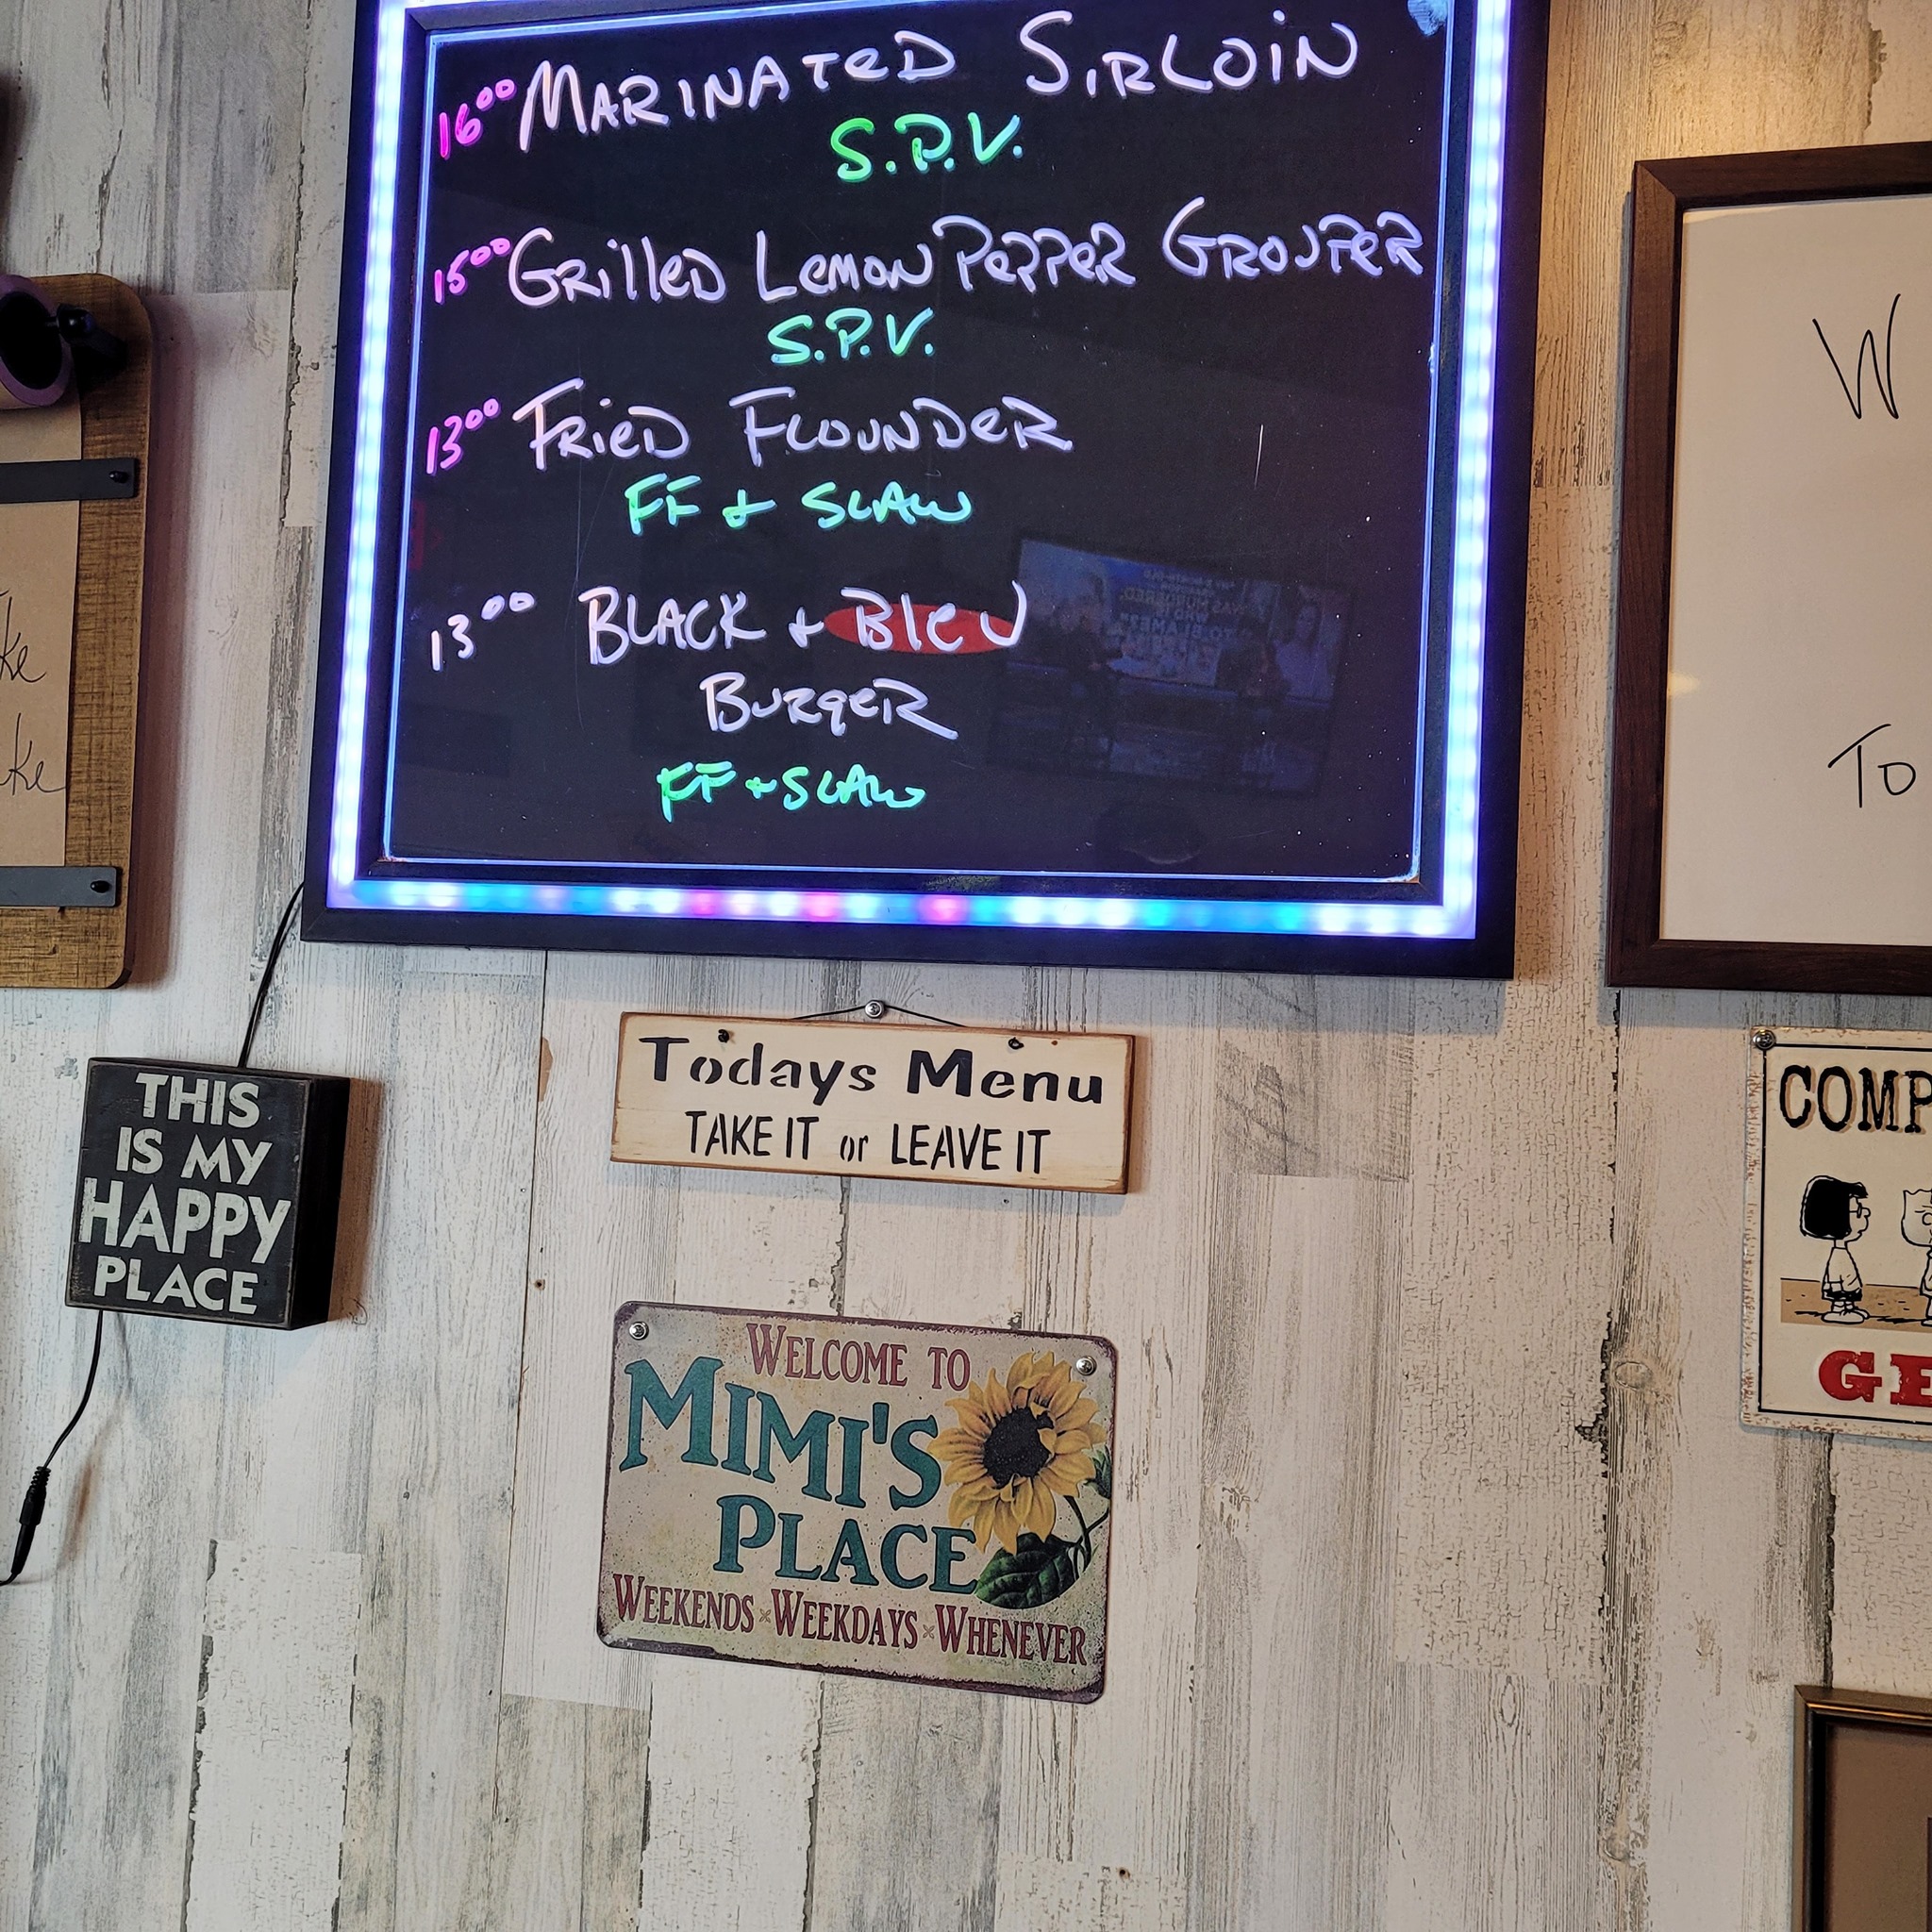 16⁰⁰ MARINATED SIRLOIN
S.P.V.
15⁰⁰ GRILLED LEMON PEPPER GROUPER
S.P.V.
13⁰⁰ FRIED FLOUNDER
FF + SLAW
13⁰⁰ BLACK + BLEU
BURGER
FF + SLAW
W
To
ke
ke
Todays Menu
TAKE IT or LEAVE IT
THIS
IS MY
HAPPY
PLACE
COMP
GE
WELCOME TO
MIMI'S
PLACE
WEEKENDS × WEEKDAYS × WHENEVER